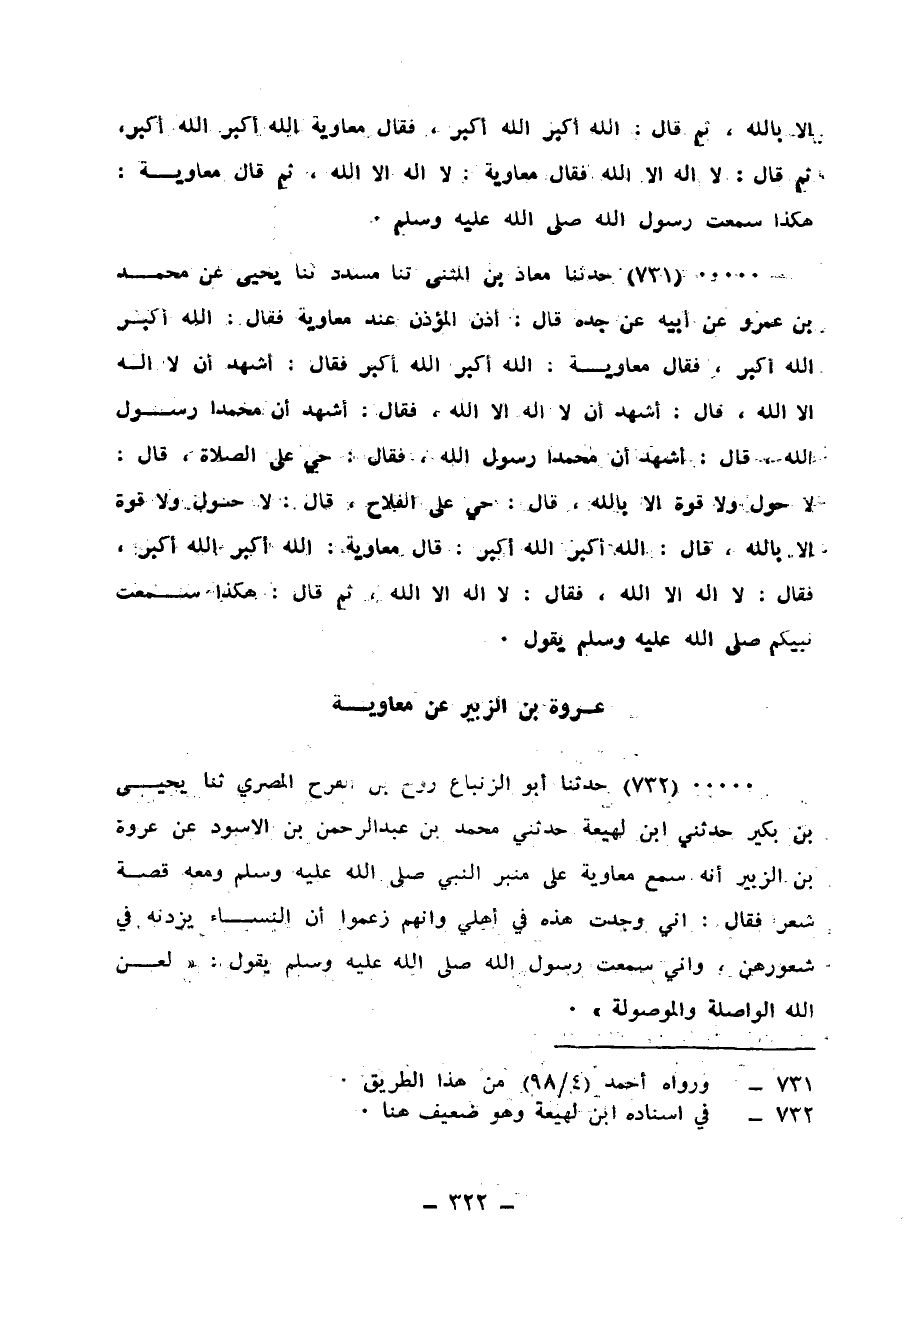 الا بالله ، ثم قال : الله أكبر الله أكبر ، فقال معاوية الله أكبر الله أكبر،
ثم قال : لا اله الا الله فقال معاوية : لا اله الا الله ، ثم قال معاويـــة :
هكذا سمعت رسول الله صلى الله عليه وسلم ٠
٠٠٠٠٠ (٧٣١) حدثنا معاذ بن المثنى ثنا مسدد ثنا يحيى عن محمـــد
بن عمرو عن أبيه عن جده قال : أذن المؤذن عند معاوية فقال : الله أكبـر
الله أكبر ، فقال معاويـــة : الله أكبر الله أكبر فقال : أشهد أن لا الـه
الا الله ، قال : أشهد أن لا اله الا الله ، فقال : أشهد أن محمدا رســـول
الله ، قال : أشهد أن محمدا رسول الله ، فقال : حي على الصلاة ، قال :
لا حول ولا قوة الا بالله ، قال : حي على الفلاح ، قال : لا حـول ولا قوة
الا بالله ، قال : الله أكبر الله أكبر : قال معاوية : الله أكبر الله أكبر ،
فقال : لا اله الا الله ، فقال : لا اله الا الله ، ثم قال : هكذا ســـمعت
نبيكم صلى الله عليه وسلم يقول ٠
عـروة بن الزبير عن معاويـــة
٠٠٠٠٠ (٧٣٢) حدثنا أبو الزنباع روح بن الفرح المصري ثنا يحيـــى
بن بكير حدثني ابن لهيعة حدثني محمد بن عبدالرحمن بن الاسود عن عروة
بن الزبير أنه سمع معاوية على منبر النبي صلى الله عليه وسلم ومعه قصـة
شعر فقال : اني وجدت هذه في أهلي وانهم زعموا أن النســـاء يزدنه في
شعورهن ، واني سمعت رسول الله صلى الله عليه وسلم يقول : « لعـــن
الله الواصلة والموصولة » ٠
٧٣١ ــ ورواه أحمد (٤/٩٨) من هذا الطريق ٠
٧٣٢ ــ في اسناده ابن لهيعة وهو ضعيف هنا ٠
ــ ٣٢٢ ــ